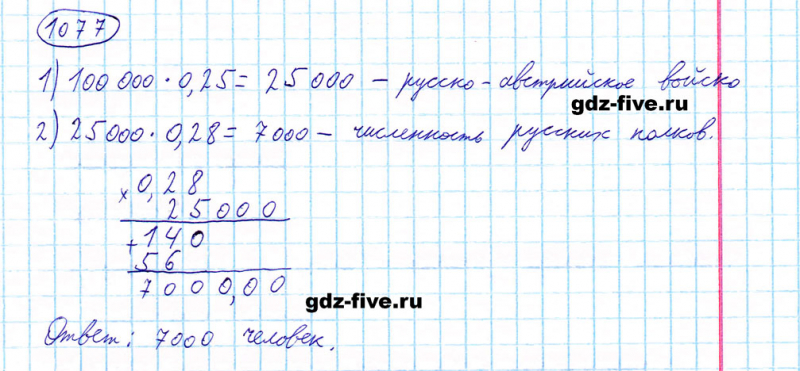 1077
1) 100 000 · 0,25 = 25 000 – русско-австрийское войско
gdz-five.ru
2) 25000 · 0,28 = 7000 – численность русских полков.
× 0,28
25000
+ 140
56
7000,00
gdz-five.ru
Ответ: 7000 человек.